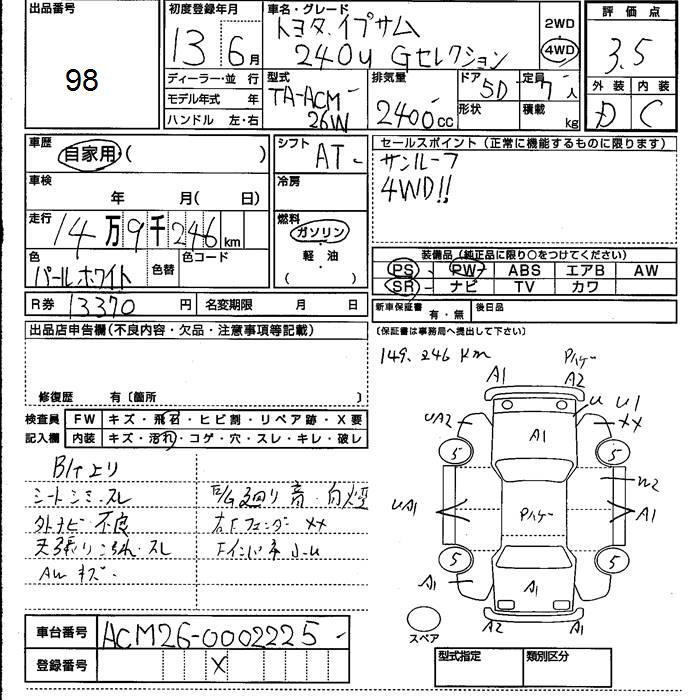 出品番号
98
初度登録年月
13 6月
車名・グレード
トヨタ イプサム
240u Gセレクション
2WD
4WD
評価点
3.5
外装 内装
D C
ディーラー・並 行
モデル年式 年
ハンドル 左・右
型式
TA-ACM-
26W
排気量
2400cc
ドア
5D
定員
7人
形状
積載
kg
車歴
自家用・( )
シフト
AT-
セールスポイント (正常に機能するものに限ります)
サンルーフ
4WD!!
車検
年 月( 日)
冷房
走行
14万9千246km
燃料
ガソリン
・軽・油・
( )
色
パールホワイト
色替
色コード
装備品 (純正品に限り○をつけてください)
PS PW ABS エアB AW
SR ナビ TV カワ
R券 13370 円 名変期限 月 日
新車保証書 有・無 後日品
(保証書は事務局へ提出して下さい)
出品店申告欄 (不良内容・欠品・注意事項等記載)
修復歴 有〔箇所 〕
検査員 FW キズ・飛石・ヒビ割・リペア跡・X要
記入欄 内装 キズ・汚れ・コゲ・穴・スレ・キレ・破レ
149,246 km
Pハゲー
A1 A2
UA2 A1 U U1
XX
5 5
UA1 Pハゲー A1
5 5
A1 A1
A2 A1
スペア
シートシミ、スレ
外ナビ不良
天張り スレ
AWキズ
E/G廻り音・白煙
右Fフェンダー XX
車台番号 ACM26-0002225-
登録番号 X
型式指定 類別区分